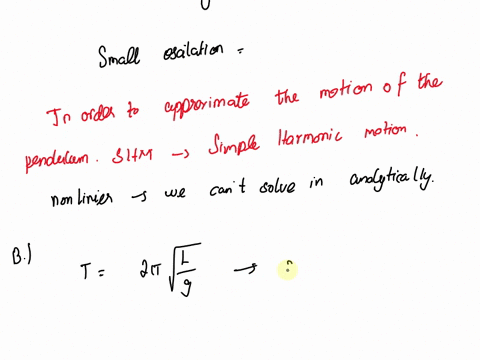 Small osilation =
In order to approximate the motion of the
pendulum. SHM → Simple Harmonic motion.
nonlinier → we can't solve in analytically.
B.) T = 2π √(L/g) →